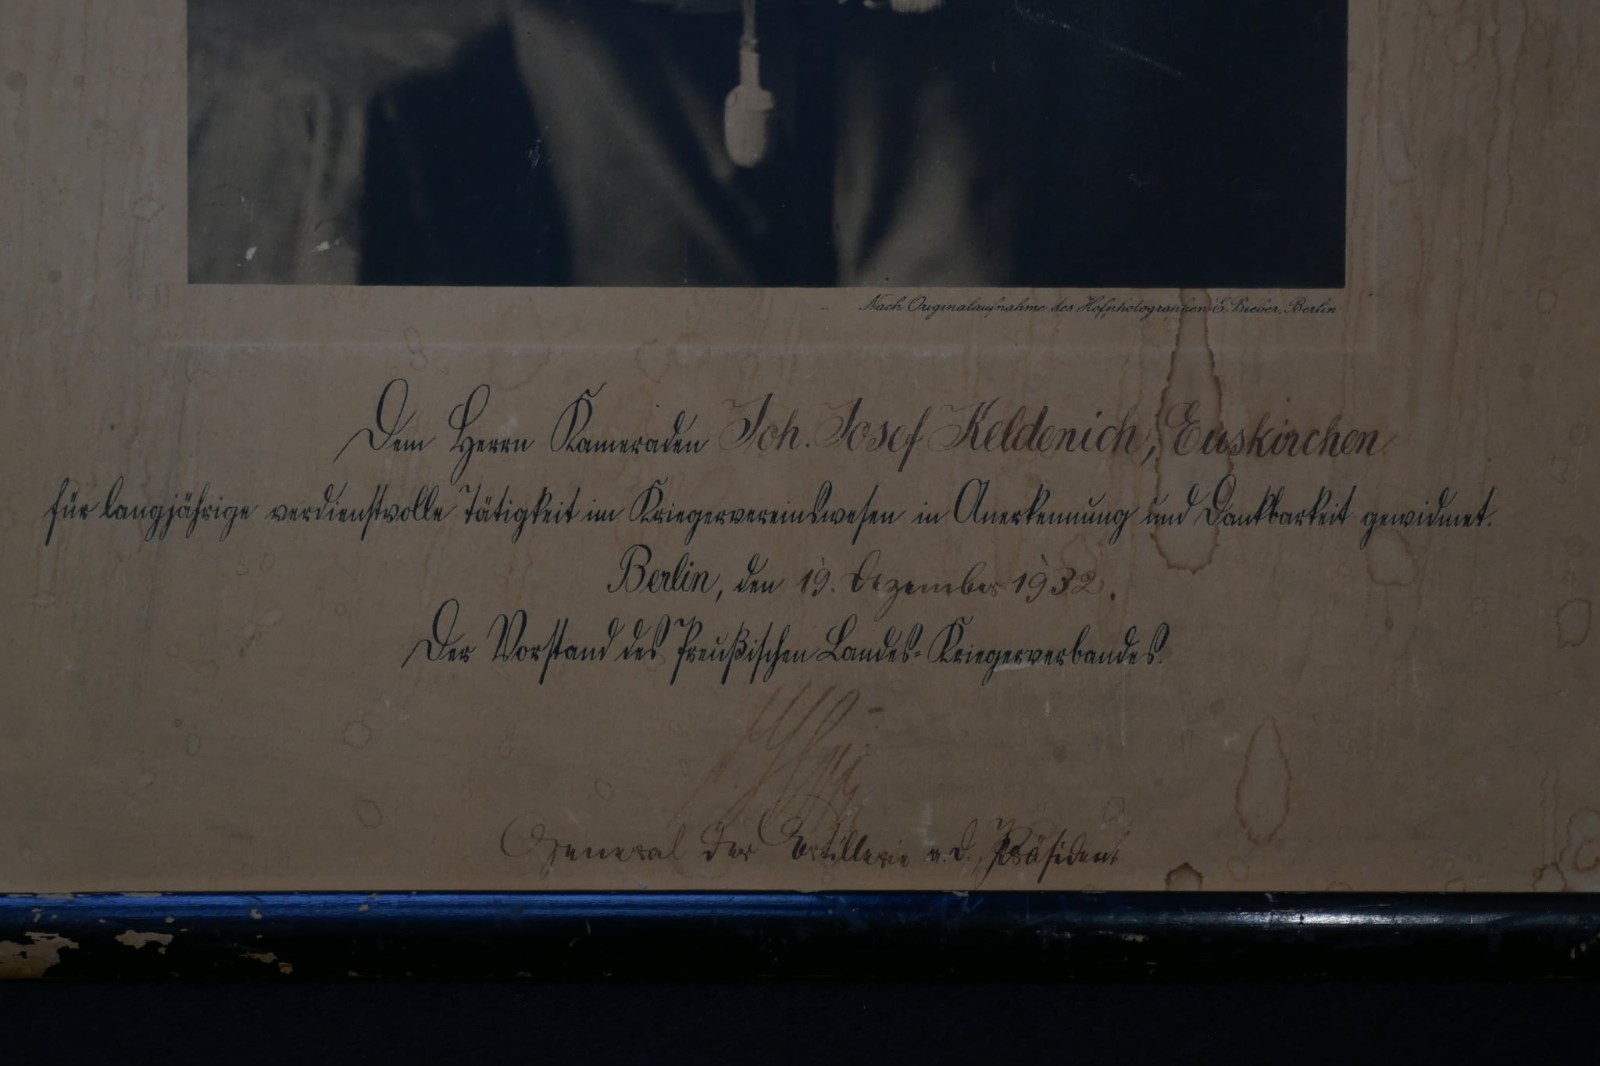 Nach Originalaufnahme des Hofphotographen E. Bieber, Berlin
Dem Herrn Kameraden Joh. Josef Keldenich, Euskirchen
für langjährige verdienstvolle Tätigkeit im Kriegervereinswesen in Anerkennung und Dankbarkeit gewidmet.
Berlin, den 19. Dezember 1932.
Der Vorstand des Preußischen Landes-Kriegerverbandes.
General der Artillerie a.D., Präsident